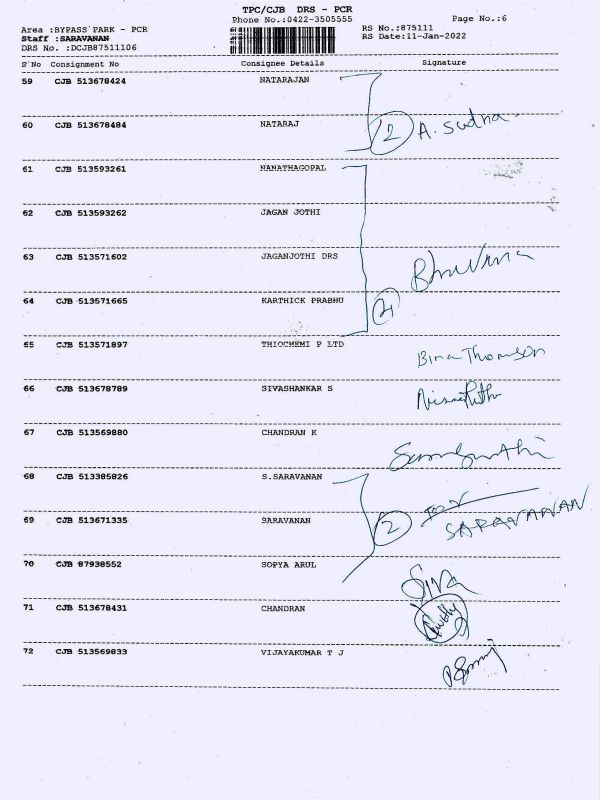 TPC/CJB DRS - PCR
Phone No.:0422-3505555 Page No.:6
Area :BYPASS PARK - PCR RS No.:875111
Staff :SARAVANAN RS Date:11-Jan-2022
DRS No. :DCJB87511106
S'No Consignment No Consignee Details Signature
59 CJB 513678424 NATARAJAN
60 CJB 513678484 NATARAJ 2 A. Sudha
61 CJB 513593261 NANATHAGOPAL
62 CJB 513593262 JAGAN JOTHI
63 CJB 513571602 JAGANJOTHI DRS Bhuvana
64 CJB 513571665 KARTHICK PRABHU
65 CJB 513571897 THIOCHEMI P LTD Bina Thomson
66 CJB 513678789 SIVASHANKAR S
67 CJB 513569880 CHANDRAN K
68 CJB 513385826 S.SARAVANAN
69 CJB 513671335 SARAVANAN 2 SARAVANAN
70 CJB 87938552 SOPYA ARUL Siva
71 CJB 513678431 CHANDRAN
72 CJB 513569833 VIJAYAKUMAR T J